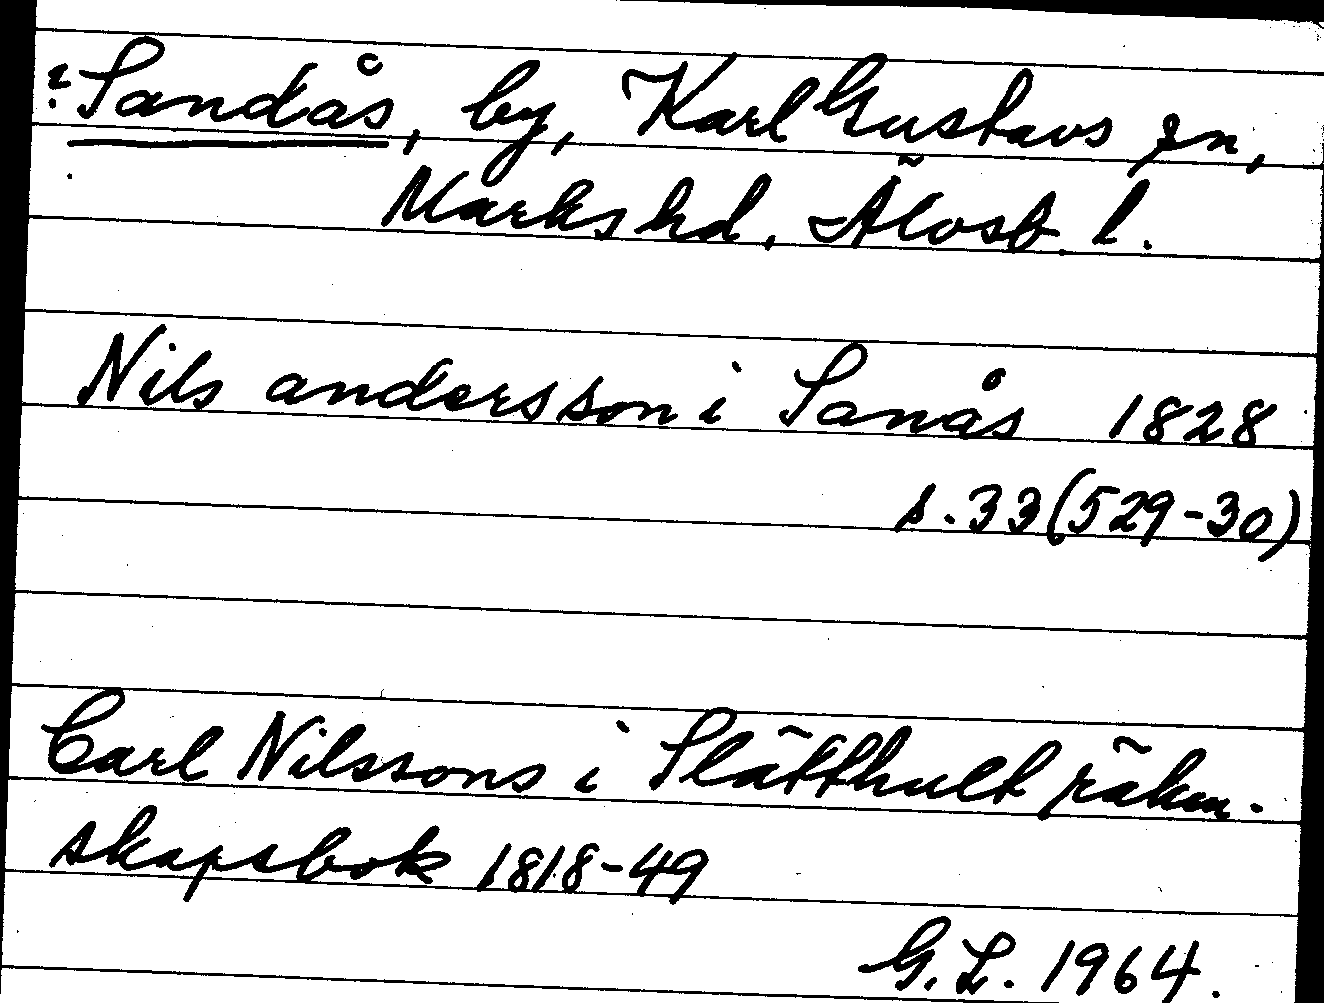 ?Sandås, by, Karl Gustavs sn,
Marks hd, Älvsb. l.
Nils andersson i Sanås 1828
s. 33 (529-30)
Carl Nilssons i Slätthult räken-
skapsbok 1818-49
G. L. 1964.